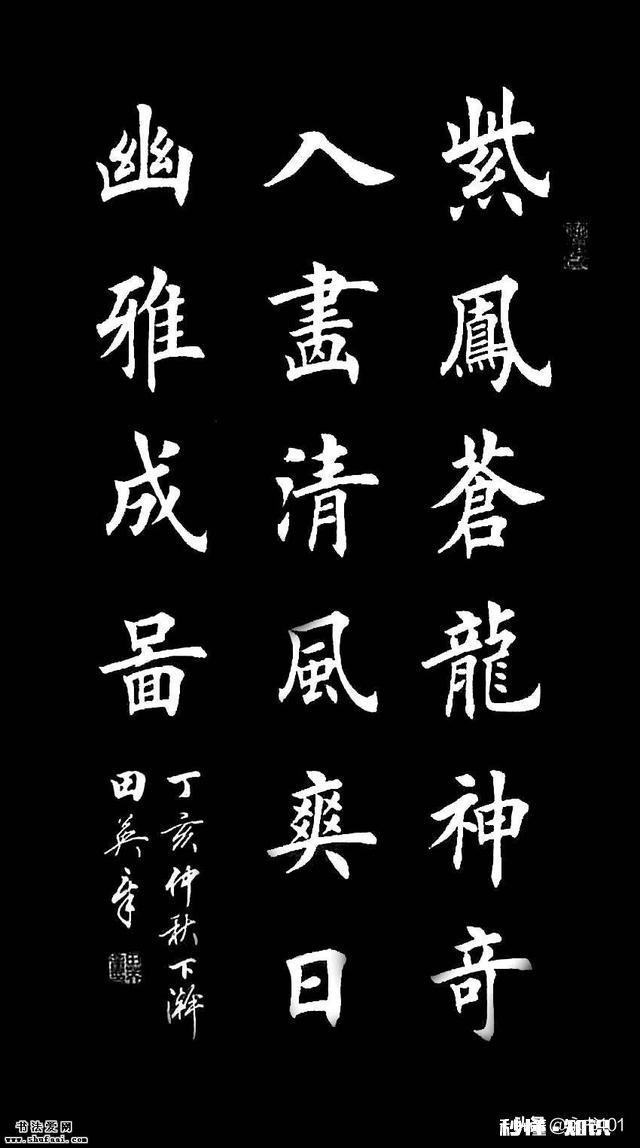 紫鳳蒼龍神奇
入畫清風爽日
幽雅成啚
丁亥仲秋下澣
田英章
书法爱网
www.shufaai.com
秒懂·知识